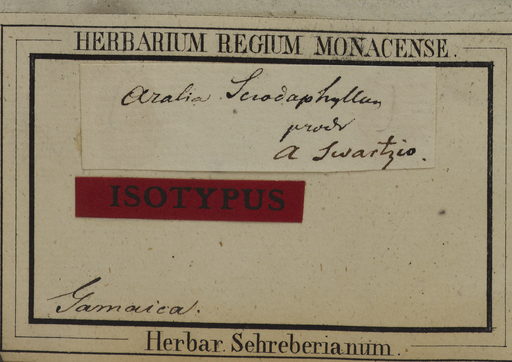 HERBARIUM REGIUM MONACENSE.
Aralia Sciodaphyllum
prodr
a Swartzio.
ISOTYPUS
Jamaica.
Herbar. Schreberianum.